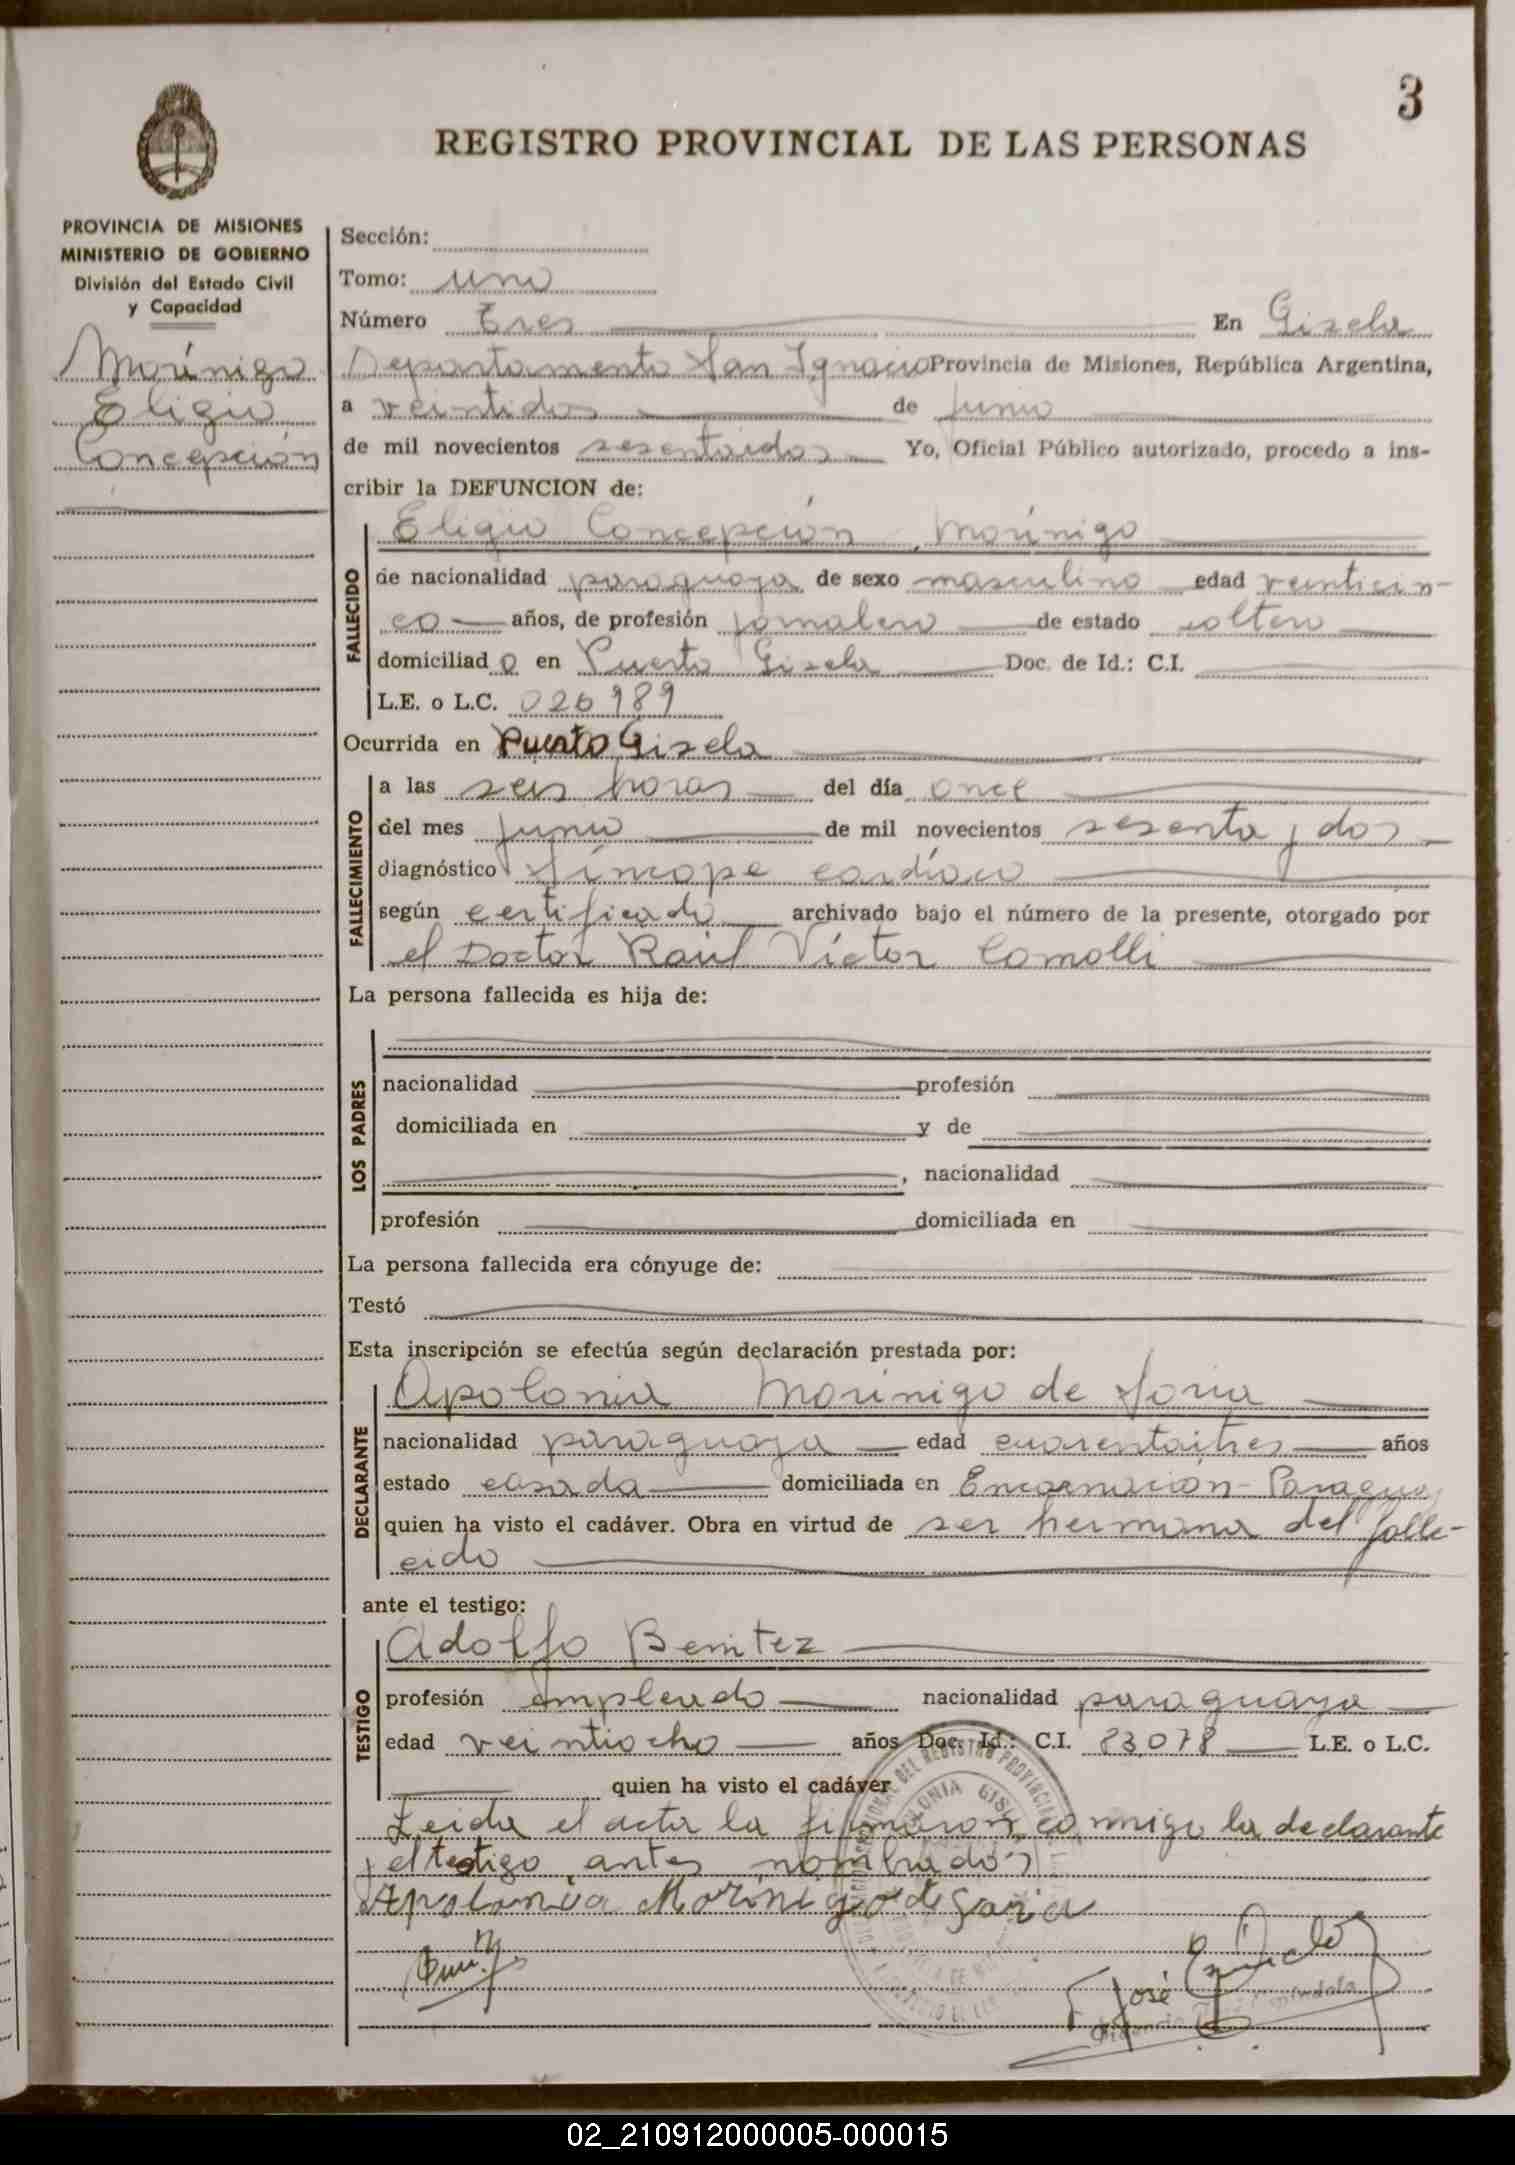 3
REGISTRO PROVINCIAL DE LAS PERSONAS
PROVINCIA DE MISIONES
MINISTERIO DE GOBIERNO
División del Estado Civil
y Capacidad
Morínigo
Eligio
Concepción
Sección:
Tomo: uno
Número Tres En Gisela
Departamento San Ignacio Provincia de Misiones, República Argentina,
a veintidos de junio
de mil novecientos sesentaidos Yo, Oficial Público autorizado, procedo a ins-
cribir la DEFUNCION de:
Eligio Concepción Morínigo
FALLECIDO
de nacionalidad paraguaya de sexo masculino edad veinticin-
co años, de profesión jornalero de estado soltero
domiciliado en Puerto Gisela Doc. de Id.: C.I.
L.E. o L.C. 026989
Ocurrida en Puerto Gisela
FALLECIMIENTO
a las seis horas del día once
del mes junio de mil novecientos sesenta y dos
diagnóstico Síncope cardíaco
según certificado archivado bajo el número de la presente, otorgado por
el Doctor Raúl Víctor Comolli
La persona fallecida es hija de:
LOS PADRES
nacionalidad profesión
domiciliada en y de
, nacionalidad
profesión domiciliada en
La persona fallecida era cónyuge de:
Testó
Esta inscripción se efectúa según declaración prestada por:
Apolonia Morinigo de Soria
DECLARANTE
nacionalidad paraguaya edad cuarentaitres años
estado casada domiciliada en Encarnación - Paraguay
quien ha visto el cadáver. Obra en virtud de ser hermana del falle-
cido
ante el testigo:
Adolfo Benitez
TESTIGO
profesión empleado nacionalidad paraguaya
edad veintiocho años Doc. Id.: C.I. 83.078 L.E. o L.C.
quien ha visto el cadáver
Leida el acta la firmaron conmigo la declarante
y el testigo antes nombrados
Apolonia Morinigo de Soria
José
02_210912000005-000015